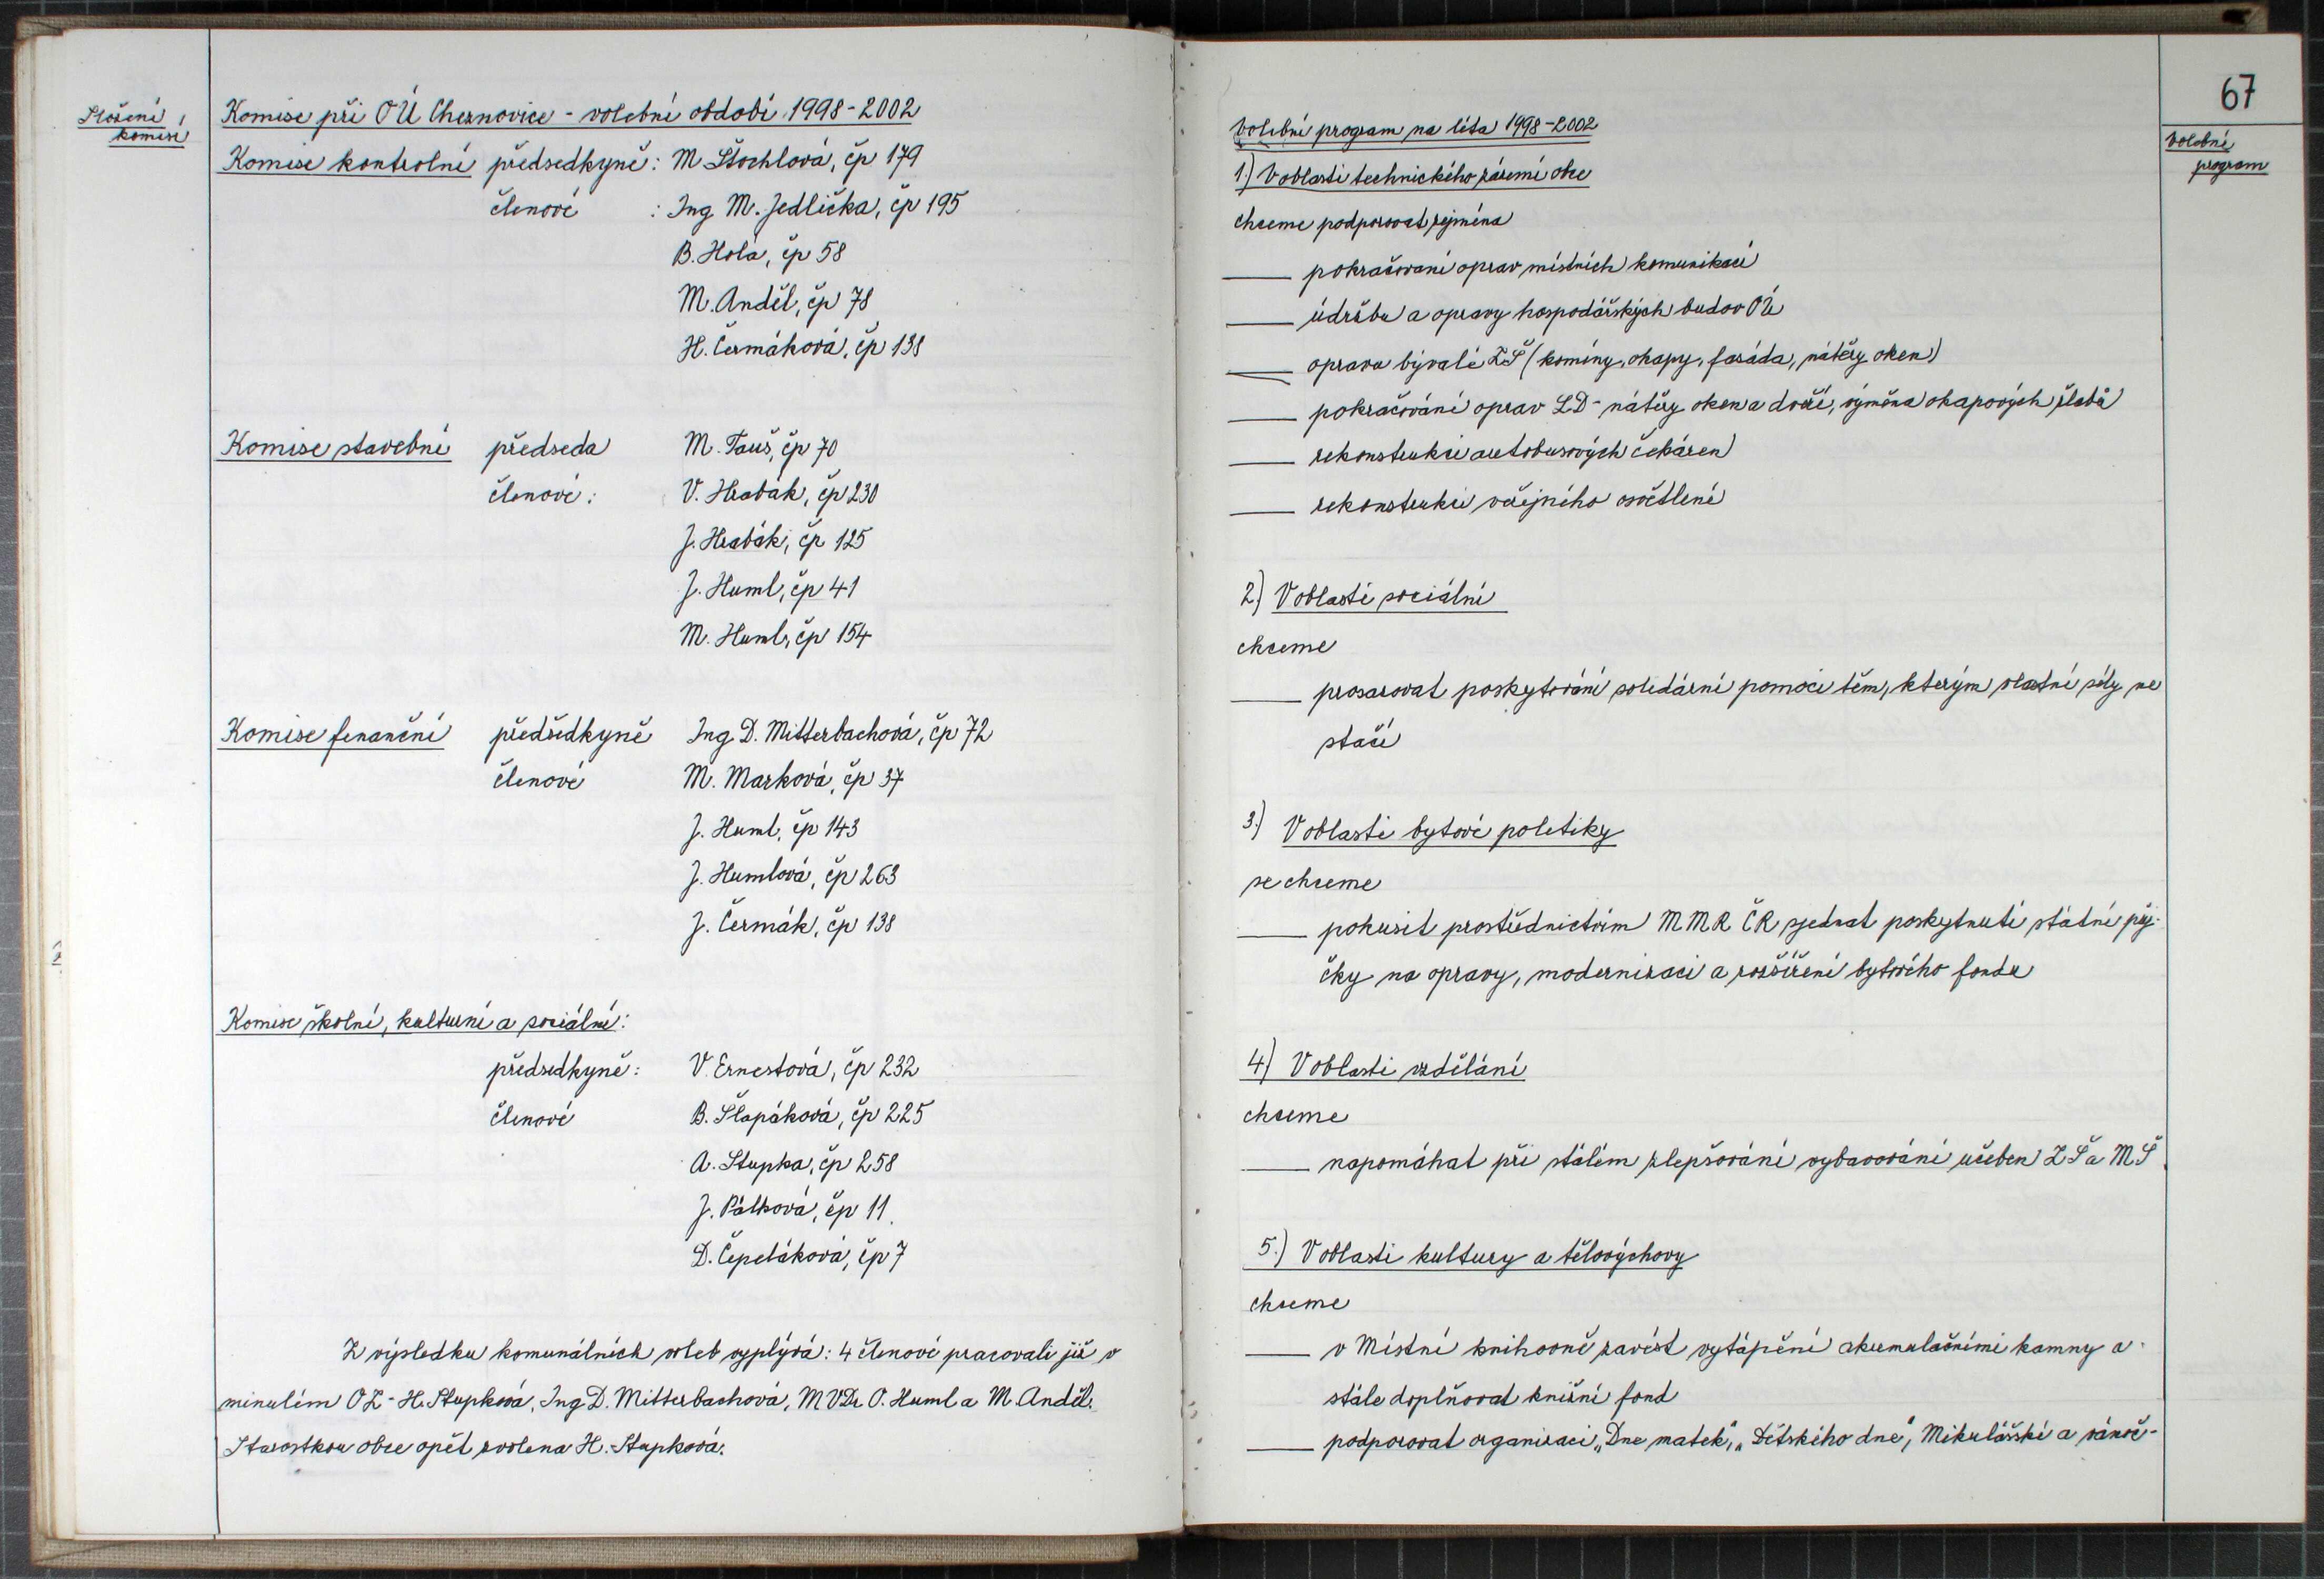 Složení
komisí
Komise při OÚ Chernovice - volební období 1998-2002
Komise kontrolní předsedkyně: M Štochlová, čp 179
členové : Ing M. Jedlička, čp 195
B. Holá, čp 58
M. Anděl, čp 78
H. Čermáková, čp 138
Komise stavební předseda M. Tauš, čp 70
členové: V. Hrabák, čp 230
J. Hrabák, čp 125
J. Huml, čp 41
M. Huml, čp 154
Komise finanční předsedkyně Ing D. Mitterbachová, čp 72
členové M. Marková, čp 37
J. Huml, čp 143
J. Humlová, čp 263
J. Čermák, čp 138
Komise školní, kulturní a sociální:
předsedkyně: V. Ernestová, čp 232
členové B. Šlapáková, čp 225
A. Stupka, čp 258
J. Pálková, čp 11.
D. Čepeláková, čp 7
Z výsledku komunálních voleb vyplývá: 4 členové pracovali již v
minulém OZ - H. Stupková, Ing D. Mitterbachová, MVDr O. Huml a M. Anděl.
Starostkou obce opět zvolena H. Stupková.
67
Volební
program
Volební program na léta 1998-2002
1.) V oblasti technického zázemí obce
chceme podporovat zejména
___ pokračování oprav místních komunikací
___ údržbu a opravy hospodářských budov OÚ
___ opravu bývalé ZŠ (komíny, okapy, fasáda, nátěry oken)
___ pokračování oprav LD - nátěry oken a dveří, výměna okapových žlabů
___ rekonstrukci autobusových čekáren
___ rekonstrukci veřejného osvětlení
2.) V oblasti sociální
chceme
___ prosazovat poskytování solidární pomoci těm, kterým vlastní síly ne
stačí
3.) V oblasti bytové politiky
se chceme
___ pokusit prostřednictvím MMR ČR sjednat poskytnutí státní půj-
čky na opravy, modernizaci a rozšíření bytového fondu
4.) V oblasti vzdělání
chceme
___ napomáhat při stálém zlepšování vybavování učeben ZŠ a MŠ.
5.) V oblasti kultury a tělovýchovy
chceme
___ v Místní knihovně zavést vytápění akumulačními kamny a
stále doplňovat knižní fond
___ podporovat organizaci „Dne matek“, „Dětského dne“, Mikulášské a vánoč-